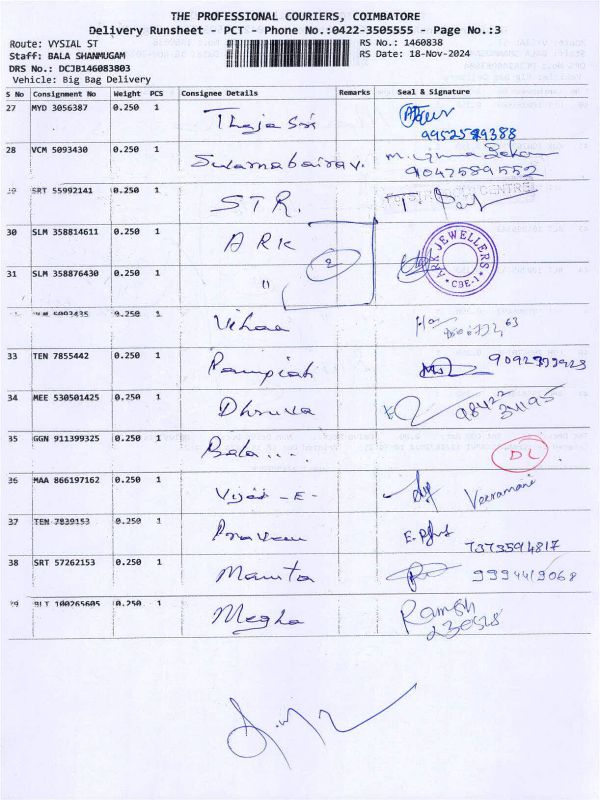 THE PROFESSIONAL COURIERS, COIMBATORE
Delivery Runsheet - PCT - Phone No-:0422-3505555 - Page No.:3
Route: VYSIAL ST
RS No.: 1460838
Staff: BALA SHANMUGAM
RS Date: 18-Nov-2024
DRS No.: DCJB146083803
Vehicle: Big Bag Delivery
S No Consignment No Weight PCS Consignee Details Remarks Seal & Signature
27 MYD 3056387 0.250 1 Theja Sri
9952589388
28 VCM 5093430 0.250 1
9047589552
29 SRT 55992141 0.250 1 STR.
30 SLM 358814611 0.250 1 ARK
2
ARK JEWELLERS
* CBE-1 *
31 SLM 358876430 0.250 1 "
0.250 1 Vihaa
33 TEN 7855442 0.250 1
34 MEE 530501425 0.250 1 Dhruva
98422
35 GGN 911399325 0.250 1 Bala ....
DL
36 MAA 866197162 0.250 1 Vijai - E - Veeramani
37 TEN 7839153 0.250 1 Praveen
7373594817
38 SRT 57262153 0.250 1 Mamta 9994419068
39 BLT 100265605 0.250 1 Megha Ramesh